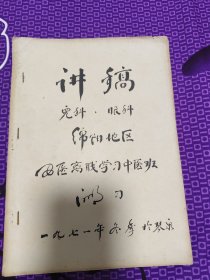 讲稿
儿科·眼科
绵阳地区
西医离职学习中医班
一九七一年冬